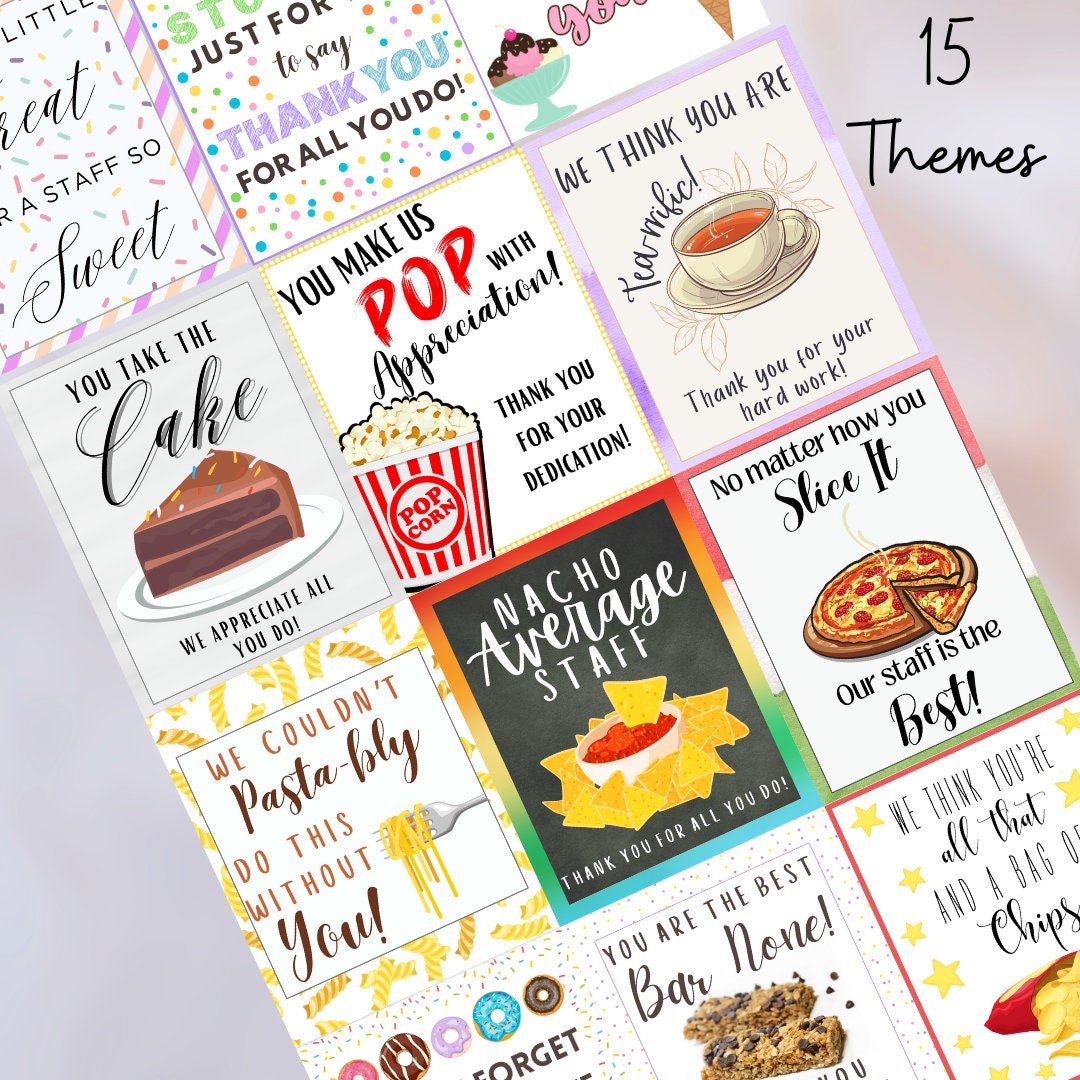 15
Themes
LITTLE
reat
R A STAFF SO
Sweet
JUST FOR
to say
THANK YOU
FOR ALL YOU DO!
WE THINK YOU ARE
Tea-rrific!
Thank you for your
hard work!
YOU MAKE US
POP WITH
Appreciation!
THANK YOU
FOR YOUR
DEDICATION!
POP
CORN
YOU TAKE THE
Cake
WE APPRECIATE ALL
YOU DO!
No matter how you
Slice It
Our staff is the
Best!
NACHO
AVERAGE
STAFF
THANK YOU FOR ALL YOU DO!
WE COULDN'T
Pasta-bly
DO THIS
WITHOUT
You!
WE THINK YOU'RE
all that
AND A BAG
Chips
YOU ARE THE BEST
Bar None!
YOU
FORGET